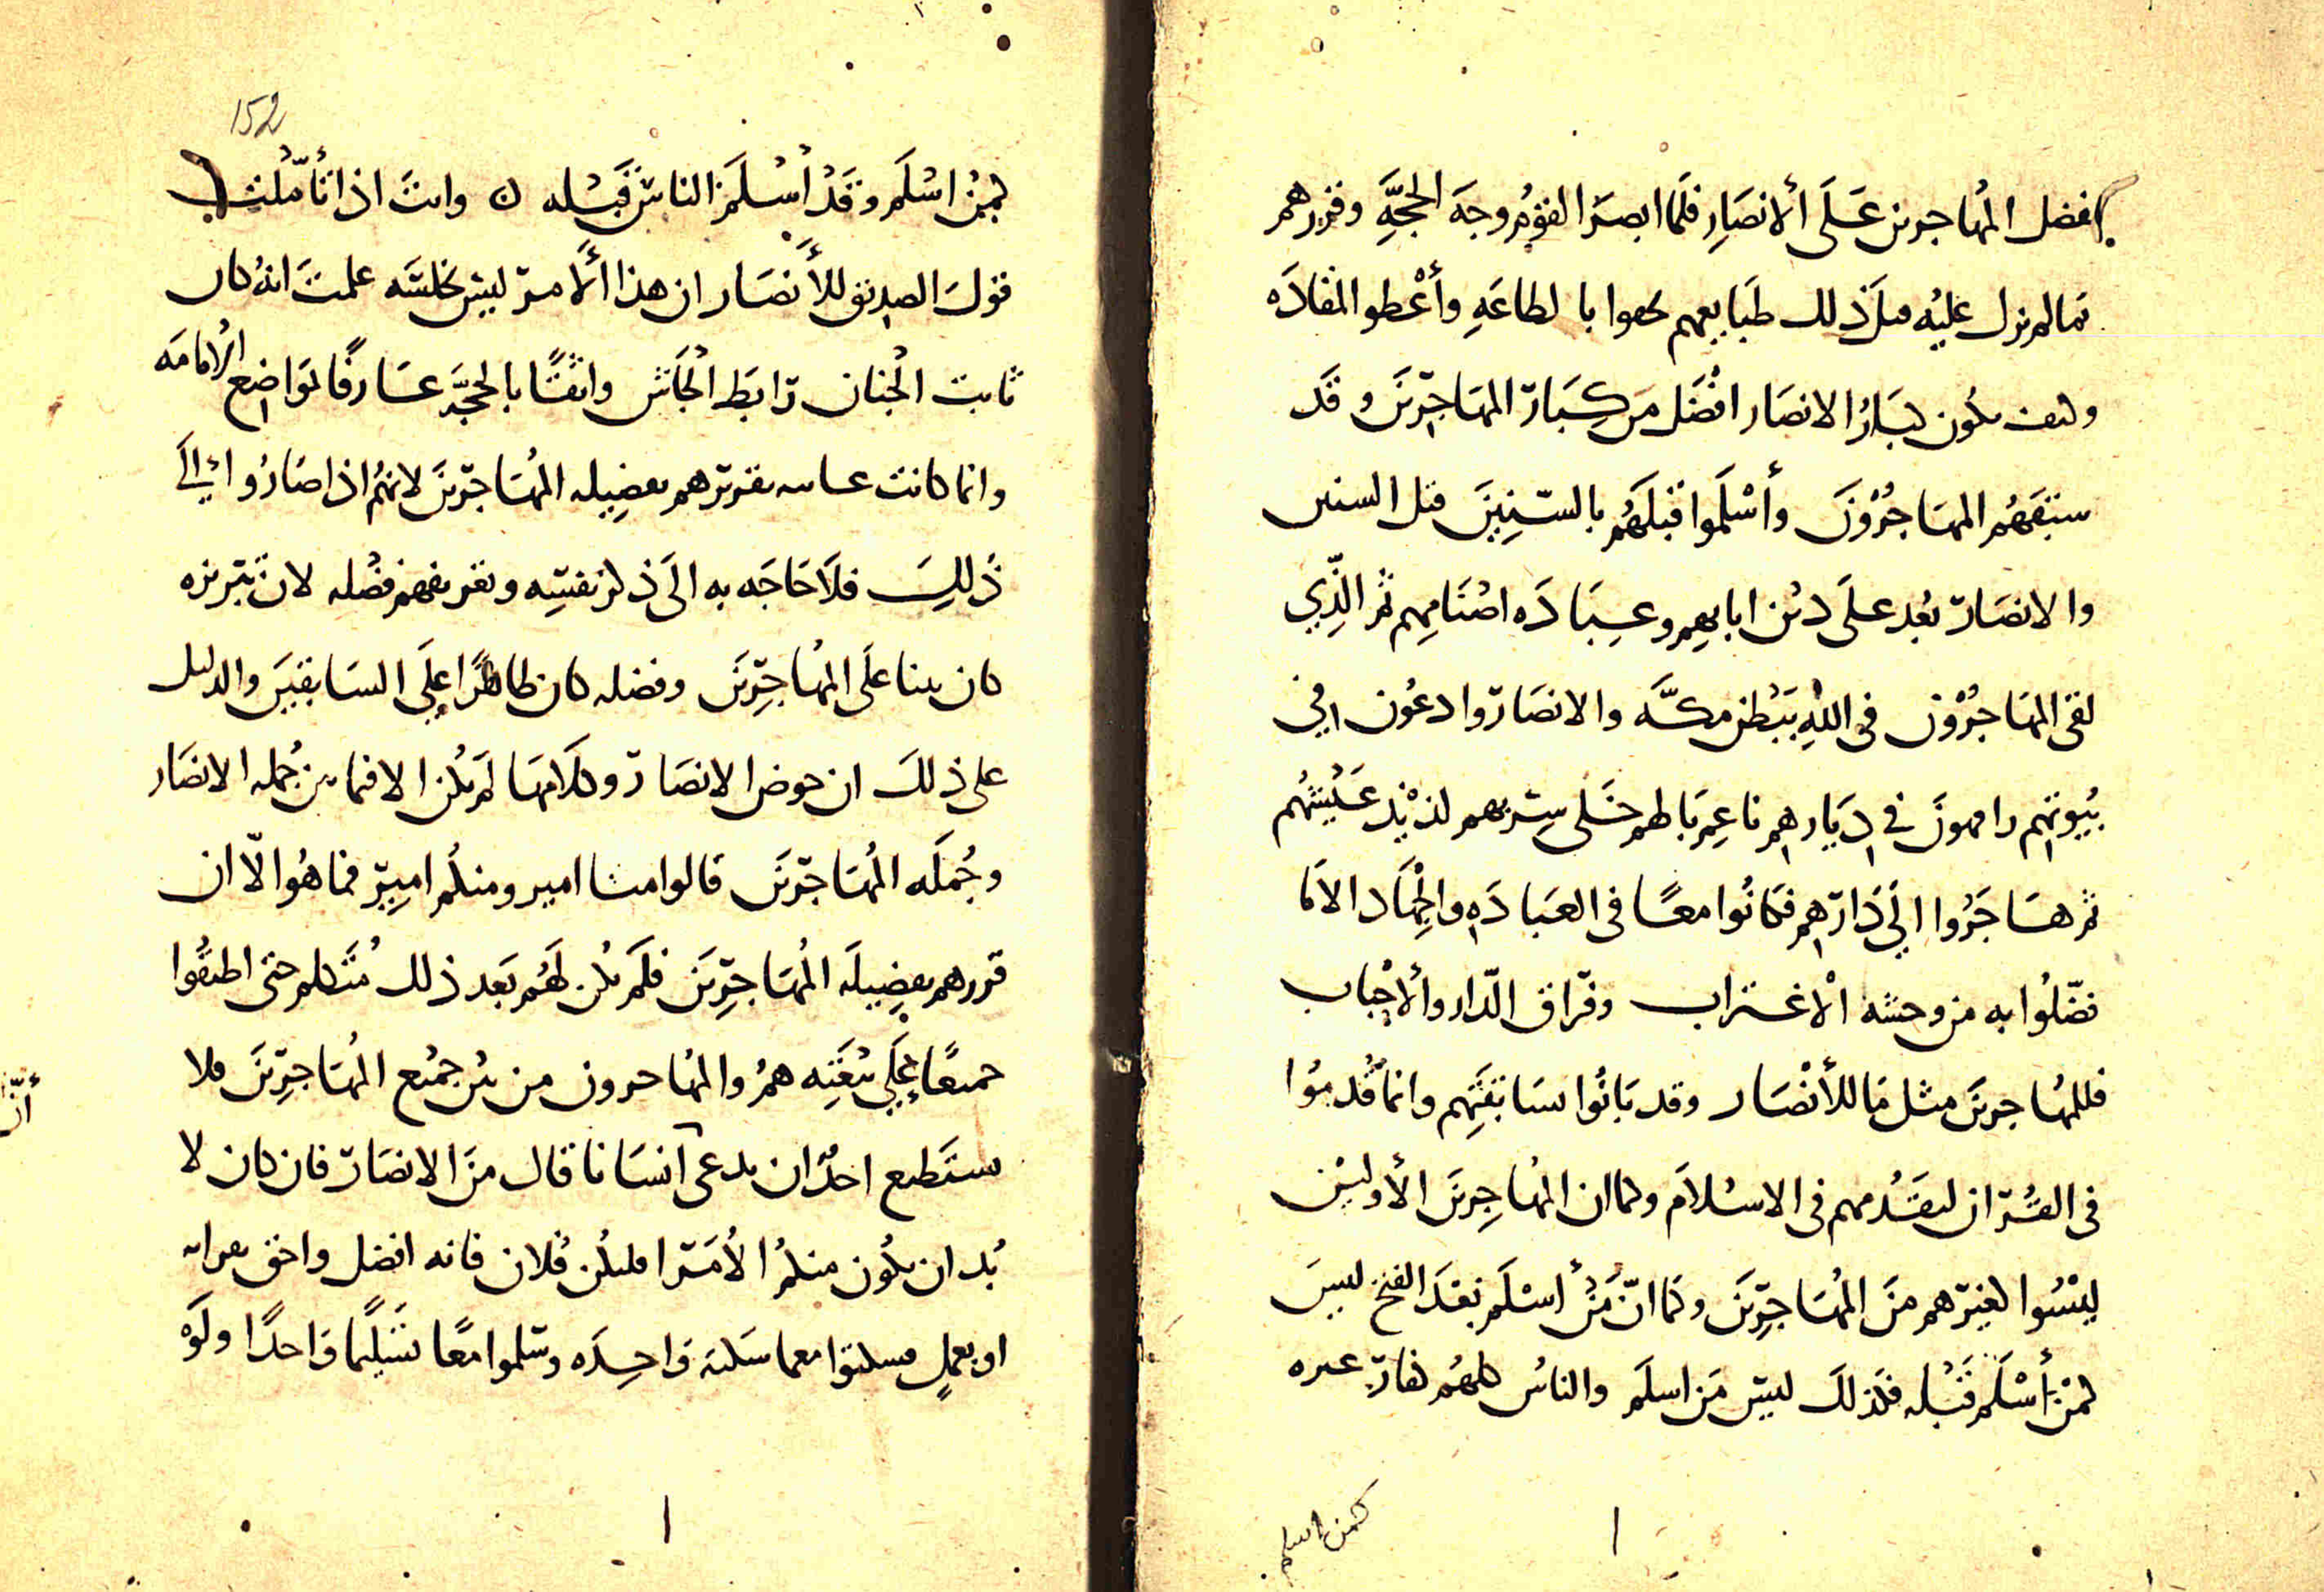 بفضل المهاجرين عَلَى ألانصَارِ فلمّا ابصرَ القومُ وجهَ الحجَّةِ وقررهم
بما لم يزل عليه قبلَ ذلك طبايعهم بالطاعَةِ وأعْطوا المقادَه
وكيف يكون كبَارُ الانصَار افضَل من كِبَار المهَاجِرِينَ وقَد
سبَقَهُم المهَاجرُونَ وأسْلَموا قبْلَهُم بالسّنِينَ قبل السنين
والانصَار بعد علَى دين ابايهِم وعِبَادَه اصْنَامِهم ثم الّذِي
لقى المهَاجرُون فى اللهِ ببَطن مكَّه والانصَار وادعُون في
بُيوتِهم رامهون في دِيَارِهم ناعِم بَالهم خَلى سِربهم لذيذ عَيشهُم
ثم هَاجَرُوا الَى دَارِهِم فكَانُوا معًا فى العبَادَهِ والْجِهَاد الا مَا
فضّلُوا به من وحشه الْاغتراب وفراق الدّار وألاحْبَاب
فللمهاجرينَ مثل مَا للأنْصَار وقد بَانُوا بسَابقَتِهم وانما قُدمُوا
فى القُرّان لتقَدُّمهم فى الاسْلاَم وكما ان المهَاجِرِينَ الأولين
ليْسُوا كغيرهم منَ المُهَاجِرِينَ وكمَا انّ مَنْ أسْلَم بَعْدَ الفتح ليسَ
كمَنْ أسْلَم قَبْله فكذلكَ ليسَ مَن اسلَم والناسُ كلهُم كفار غيره
كمن اسلم
152
كمنْ اسْلَم وقَدْ أسْلَم الناسُ قَبْله ن وانتَ اذا تأمّلْت
قولَ الصديق للأنصَار ان هذا ألامر ليسَ بخلسَه علمتَ انهُ كان
ثابت الْجنان رَابِطَ الْجَأش واثقًا بالحجَّه عَارفًا بموَاضِع الْامامَه
وانما كانت عاىه بقريرهم بفضِيله المُهَاجِرِينَ لانهُم اذا صَارُوا الَى
ذَلكِ فلاَ حَاجَه به الَى ذكر نفسِه وتعريفهم فضْله لان تبريزه
كان بينا علَى المهَاجِرِينَ وفضله كان ظاهرًا علَى السَابقينَ والدليل
على ذلكَ ان خوض الانصَار وكلاَمهَا لم يكن الا فيما بين جُمله الانصَار
وجُملَه المُهَاجرِينَ قالوا منا امير ومنكُم اميرٌ فما هُو الّا ان
قررهم بفضِيلَه المُهَاجِرِينَ فلَم يكن لَهُم بَعد ذلك مُتَكلم حتى اطبقُوا
جميعًا علَى بَيْعَتِه همُ والمهَاجرون من بين جميع المُهَاجِرِينَ فلا
يستَطيع احدٌ ان يدعى انسَانا قال منَ الانصَار فان كان لا
بُد ان يكُون منكُم الأُمَرا فليكُن فُلان فانه افضل واحق بقرابه
او بعملٍ فسكتوا معا سَكته وَاحِدَه وسَلموا معًا تسْلِيمًا وَاحدًا ولَوْ
أنّ